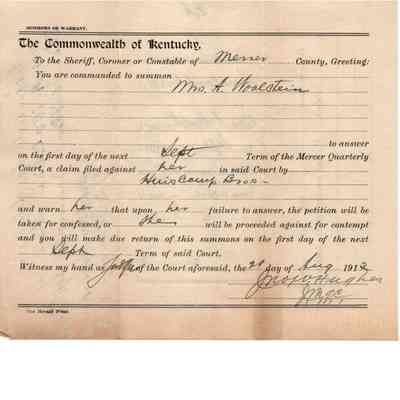 SUMMONS OR WARRANT.
The Commonwealth of Kentucky,
To the Sheriff, Coroner or Constable of Mercer County, Greeting:
You are commanded to summon
Mrs. A. Woolstein
to answer
on the first day of the next Sept Term of the Mercer Quarterly
Court, a claim filed against her in said Court by
Huiscamp Bros.
and warn her that upon her failure to answer, the petition will be
taken for confessed, or She will be proceeded against for contempt
and you will make due return of this summons on the first day of the next
Sept Term of said Court.
Witness my hand as Judge of the Court aforesaid, the 20 day of Aug 1912
Hughes
The Herald Print.